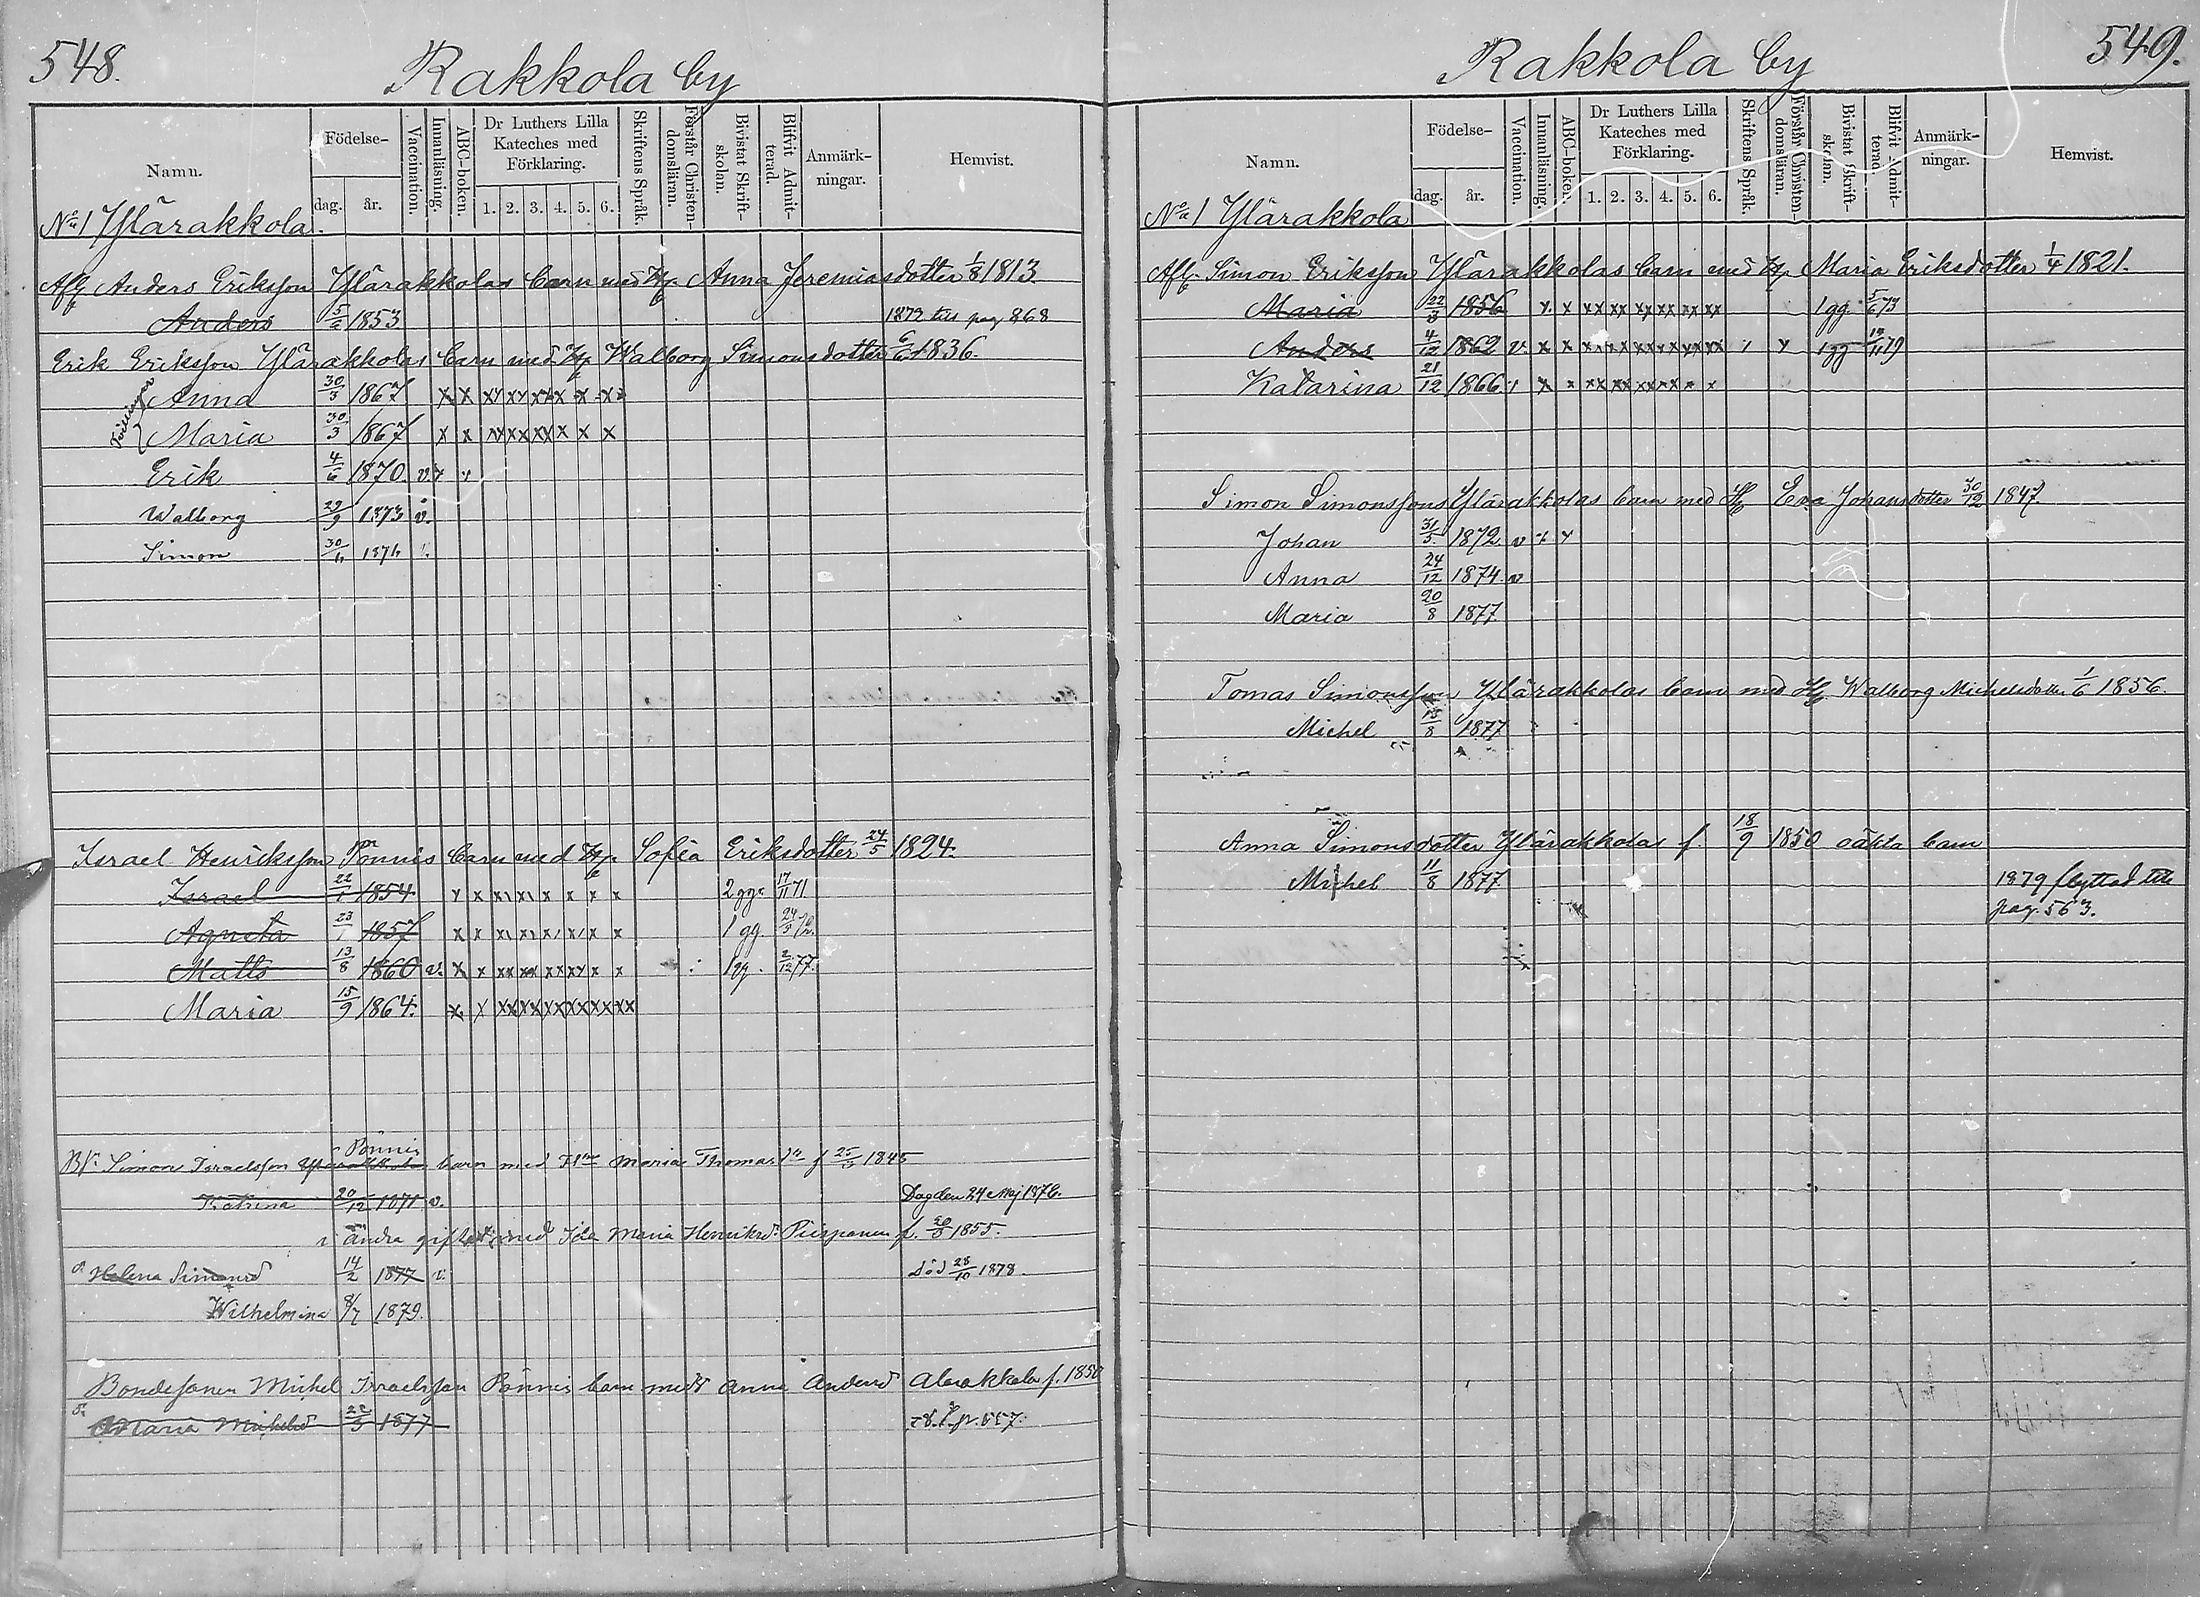 548.
Rakkola by
Namn.
Födelse-
dag.
år.
Vaccination.
Innanläsning.
ABC-boken.
Dr Luthers Lilla
Kateches med
Förklaring.
1. 2. 3. 4. 5. 6.
Skriftens Språk.
Förstår Christen-
domsläran.
Bivistat Skrift-
skolan.
Blifvit Admit-
terad.
Anmärk-
ningar.
Hemvist.
No 1 Ylärakkola.
Afl. Anders Eriksson Ylärakkolas barn med H. Anna Jeremiasdotter 1/8 1813.
Anders 5/6 1853 1873 till pag 868
Erik Eriksson Ylärakkolas barn med H. Walborg Simonsdotter 6/6 1836.
Tvillingar
Anna 30/3 1867 x x xx xx xx x x x
Maria 30/3 1867 x x xx xx xx x x x
Erik 4/6 1870. v. x x
Walborg 29/9 1873 v.
Simon 30/6 1876
Israel Henriksson Pönnis barn med H. Sofia Eriksdotter 24/5 1824.
Israel 22/1 1854 x x x x x x x x 2 ggr 17/11 71
Agneta 23/1 1857 x x x x x x x x 1 gg. 24/5
Matts 13/8 1860 v. x x xx xx xx xx x x 1 gg. 2/12 77.
Maria 15/9 1864. x x xx xx xx xx xx xx
Simon Israelsson Ylärakkolas Pönnis barn med H. Maria Thomas dr f 25/3 1845
Katrina 20/12 1871 v. Dog den 24 Maj 1876.
i andra giftet med Ida Maria Henriksd. Piispanen f. 20/3 1855.
dr Helena Simonsd 14/2 1877 v. död 28/10 1878
Wilhelmina 8/7 1879.
Bondesonen Michel Israelsson Pönnis barn med Anna Andersd Alarakkola f. 1850
dr Maria Michelsd 22/5 1877
549.
Rakkola by
Namn.
Födelse-
dag.
år.
Vaccination.
Innanläsning.
ABC-boken.
Dr Luthers Lilla
Kateches med
Förklaring.
1. 2. 3. 4. 5. 6.
Skriftens Språk.
Förstår Christen-
domsläran.
Bivistat Skrift-
skolan.
Blifvit Admit-
terad.
Anmärk-
ningar.
Hemvist.
No 1 Ylärakkola
Afl. Simon Eriksson Ylärakkolas barn med H. Maria Eriksdotter 1/4 1821.
Maria 22/8 1856 x x xx xx xx xx xx xx 1 gg 5/6 73
Anders 4/12 1862 v. x x xx xx xx xx xx xx x 1 gg 79
Katarina 21/12 1866 x x xx xx xx xx x x
Simon Simonssons Ylärakkolas barn med H. Eva Johansdotter 30/12 1847.
Johan 31/5 1872 v x x
Anna 24/12 1874. v
Maria 20/8 1877.
Tomas Simonsson Ylärakkolas barn med H. Walborg Michelsdotter 1/6 1856.
Michel 15/8 1877
Anna Simonsdotter Ylärakkolas f. 18/9 1850 oäkta barn
Michel 11/8 1877 1879 flyttad till
pag. 563.